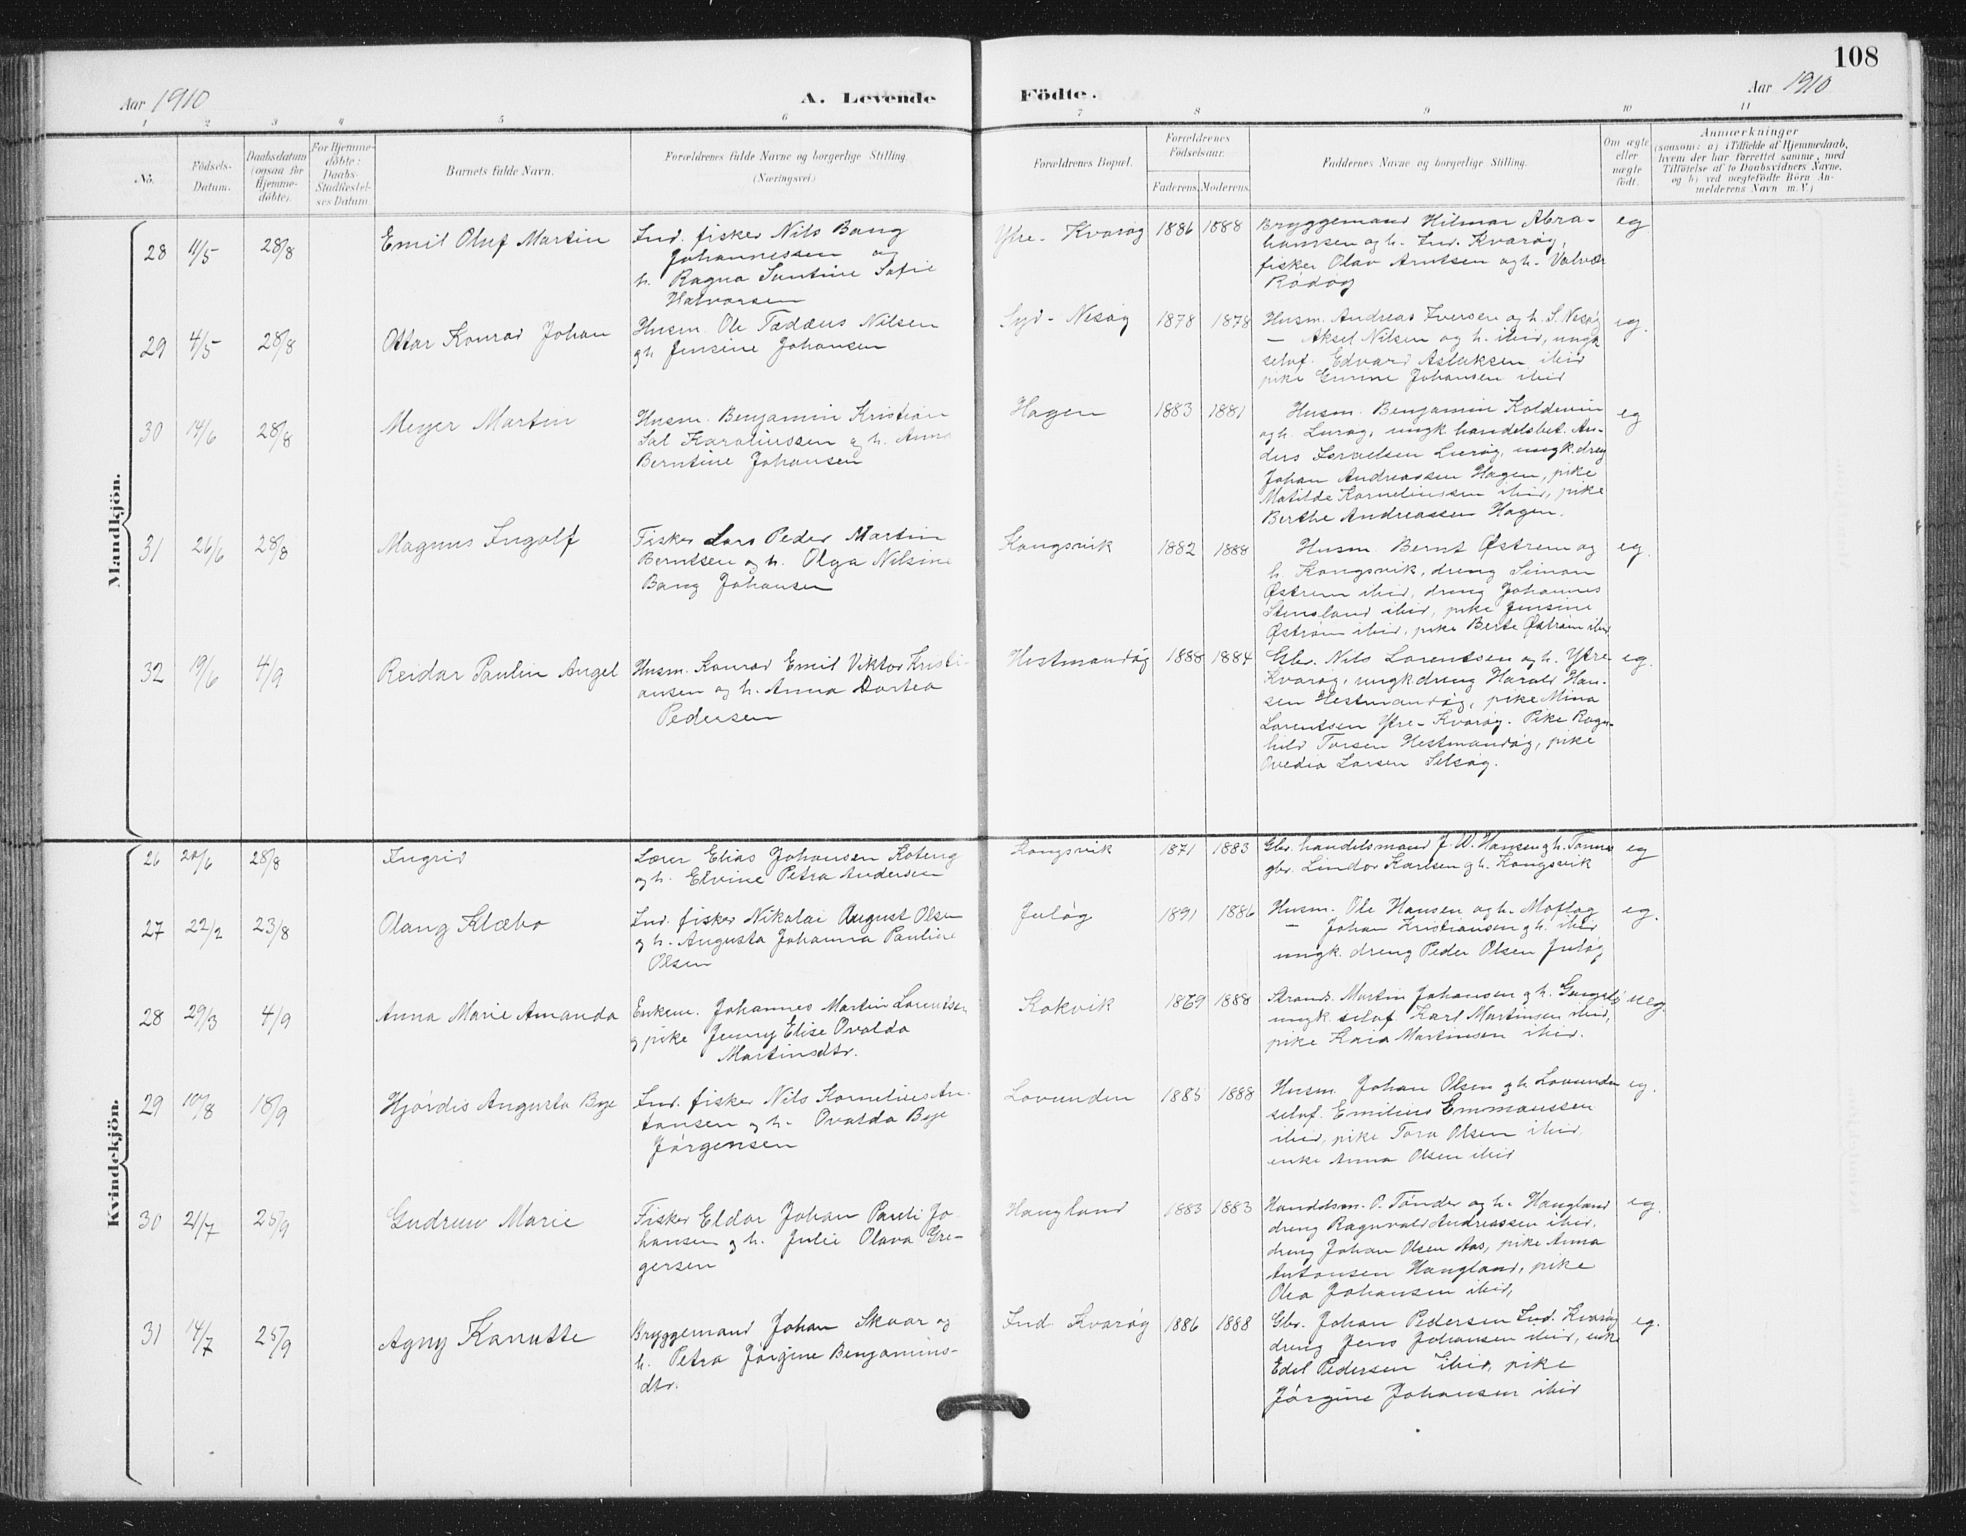 108
Aar 1910
A. Levende
Födte.
Aar 1910
1 2 3 4 5 6 7 8 9 10 11
No.
Födsels-
Datum.
Daabsdatum
(ogsaa for
Hjemme-
döbte).
For Hjemme-
döbte:
Daabs-
Stadfæstel-
ses Datum.
Barnets fulde Navn.
Forældrenes fulde Navne og borgerlige Stilling.
(Næringsvei.)
Forældrenes Bopæl.
Forældrenes
Födselsaar.
Faderens. Moderens.
Faddernes Navne og borgerlige Stilling.
Om ægte
eller
uægte
födt.
Anmærkninger
(saasom: a) i Tilfælde af Hjemmedaab,
hvem der har forrettet samme, med
Tilföielse af to Daabsvidners Navne.
og b) ved uægtefödte Börn An-
melderens Navn m. V.)
Mandkjön.
28 11/5 28/8
Emil Oluf Martin
Ind. fisker Nils Bang
Johannessen og
h. Ragna Santine Sofie
Halvorsen
Ytre-Kvarøg 1886 1888
Bryggemand Hilmar Abra-
hamsen og h. Ind. Kvarøg,
fisker Olav Arntsen og h. Valvær
Rödøg
eg
29 4/5 28/8
Ottar Konrad Johan
Husm. Ole Taddæus Nilsen
og h. Jensine Johansen
Syd-Nesøg 1878 1878
Husm. Andreas Iversen og h. S. Nesøg
— Aksel Nilsen og h. ibid, ungk.
selvf. Edvard Aslaksen ibid
pike Johansen ibid
eg.
30 14/6 28/8
Meyer Martin
Husm. Benjamin Kristian
Sal Karoliussen og h. Anna
Berntine Johansen
Hagen 1883 1881
Husm. Benjamin Koldevin
og h. Lurøg, ungk handelsbet. An-
ders Israelsen Lurøg, ungk. dreng
Johan Andreassen Hagen, pike
Matilde Korneliussen ibid, pike
Berthe Andreassen Hagen.
eg
31 26/6 28/8
Magnus Ingolf
Fisker Lars Peder Martin
Berntsen og h. Olga Nilsine
Bang Johansen
Kongsvik 1882 1888
Husm. Bernt Østrem og
h. Kongsvik, dreng Simon
Østrem ibid, dreng Johannes
Stensland ibid, pike Jensine
Østrem ibid, pike Berte Østrøm ibid
eg.
32 19/6 4/9
Reidar Paulin Angel
Husm. Konrad Emil Viktor Kristi-
ansen og h. Anna Dortea
Pedersen
Hestmandøg 1888 1884
Gbr. Nils Lorentsen og h. Ytre
Kvarøg, ungk dreng Harald Han-
sen Hestmandøg, pike Mina
Lorentsen Ytre-Kvarøg. Pike Ragn-
hild Torsen Hestmandøg, pike
Ovedia Larsen Selsøg.
eg.
Kvindekjön.
26 20/6 28/8
Ingrid
Lærer Elias Johansen Koteng
og h. Elvine Petra Andersen
Kongsvik 1871 1883
Gbr. handelsmand J. W. Hansen og h. Tonnes
gbr. Lindor Karlsen og h. Kongsvik
eg
27 22/2 23/8
Olaug Klæbo
Ind. fisker Nikolai August Olsen
og h. Augusta Johanna Pauline
Olsen
Juløg 1891 1886
Husm. Ole Hansen og h. Moflag
— Johan Kristiansen og h. ibid
ungk. dreng Peder Olsen Juløg
eg.
28 29/3 4/9
Anna Marie Amanda
Enkem. Johannes Martin Lorentsen
og pike Jenny Elise Ovalda
Martinsdtr.
Kokvik 1869 1888
Strands. Martin Johansen og h.
ungk. selvf. Karl Martinsen ibid,
pike Kaia Martinsen ibid.
ueg.
29 10/8 18/9
Hjördis Augusta Bye
Ind. fisker Nils Kornelius An-
tonsen og h. Ovalda Bye
Jørgensen
Lovunden 1885 1888
Husm. Johan Olsen og h. Lovunden
selvf. Emilius Emmaussen
ibid, pike Tora Olsen ibid.
enke Anna Olsen ibid
eg.
30 21/7 25/9
Gudrun Marie
Fisker Eldor Johan Pauli Jo-
hansen og h. Julie Olava Gre-
gersen
Haugland 1883 1883
Handelsm. P. Tönder og h. Haugland
dreng Ragnvald Andreassen ibid.
dreng Johan Olsen Aas, pike Anna
Antonsen Haugland, pike
Olea Johansen ibid,
eg.
31 14/7 25/9
Agny Kanutte
Bryggemand Johan Skaar og
h. Petra Jørgine Benjamins-
dtr.
Ind. Kvarøg 1886 1888
Gbr. Johan Pedersen Ind. Kvarøg
dreng Jens Johansen ibid, enke
Edel Pedersen ibid, pike
Jörgine Johansen ibid
eg.